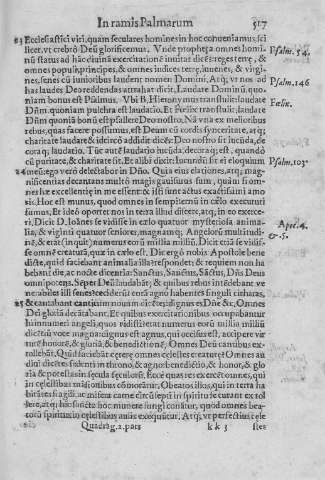 In ramis Palmarum 517
23 Ecclesiastici vici, quam seculares homines in hoc conueniamus sci
licet, vt crebrò Deũ glorificemus. Vnde propheta omnes homi Psalm. 54.
nũ status ad hãc diuinã exercitationẽ inuitat dicẽs: reges terrę, &
omnes populi, principes, & omnes iudices terrę, iuuenes, & virgi
nes, senes cũ iunioribus laudent nomen Domini, Atq; vt nos ad Psalm. 146
has laudes Deo reddendas attrahat dicit, Laudate Dominũ, quo-
niam bonus est Psalmus. Vbi B. Hieronymus transtulit: laudate Fœlix.
Dñm, quoniam pulchra est laudatio, Et Fœlix transtulit, laudate
Dñm quoniã bonũ est psallere Deo nostro. Nã vna ex melioribus
rebus, quas facere possumus, est Deum cũ cordis synceritate, atq;
charitate laudare & idcircò addidit dicẽs: Deo nostro sit iucũda, de
coraq; laudatio. Tũc autẽ laudatio iucũda, decoraq; est, quando
cũ puritate, & charitate fit. Et alibi dicit: Iucundũ sit ei eloquium Psalm. 103.
24 meũ: ego verò delectabor in Dño. Quia eius elationes, atq; mag-
nificentias decantare multò magis gauisuus sum, quàm si om-
nes hæ excellentię in me essent: & isti sunt actus exactissimi animo
sic. Hor est munus, quod omnes in sempiternũ in cælo executuri
sumus, Et ideò oportet nos in terra illud discere, atq; in eo exerce-
ri, Dicit D. Ioãnes se vidisse in cælo quatuor mysteriosa anima- Apoc. 4.
lia, & viginti quatuor seniores, magnamq; Angelorũ multitudi- & 5.
nẽ, & erat (inquit) numerus eorũ millia milliũ. Dicit etiã se vidis-
se omnẽ creaturã, quæ in cælo est. Dic ergò nobis Apostole bene
dicte, quid faciebant animalia illa? respondet: & requiem non ha
bebant die, ac nocte dicentia: Sanctus, Sanctus, Sãctus, Dñs Deus
omnipotens. Semper Deũ laudabãt; & quibus rebus intẽdebant ve
nerabiles illi senes? recidebãt corã agno habentes singuli citharas,
25 & cantabant canticum nouum dicẽtes: dignus es Dñe &c, Omnes
Dei gloriã decãtabant. Et quibus exercitationibus occupabantur
innumeri angeli, quos vidisti? erat numerus eorũ millia milliũ
dicẽtiũ voce magna: dignus est agnus, qui occisus est, accipere vir
tutẽ honorẽ, & gloriã, & benedictionẽ; Omnes Deũ cantibus ex-
tollebãt. Quid faciebãt cęterę omnes celestes creaturę? Omnes au
diui dicẽtes sedenti in throno, & agno: benedictio, & honor, & glo
ria & potestas in secula seculorũ. Ecce quas res exercẽt omnes, qui
in celestibus mãsionibus cõmorãtur, Obeatos illos, qui in terra ha
bitãtes fragili, ac misera carne circũsepti in spiritu se curant extol
lere, atq; hoc sancto hoc munere fungi conãtur, quod omnes bea-
torũ spiritus in celestibus aulis exequũtur, Atq; vt perfectius tale
Quadrag. 2. pars k k 3 fiet